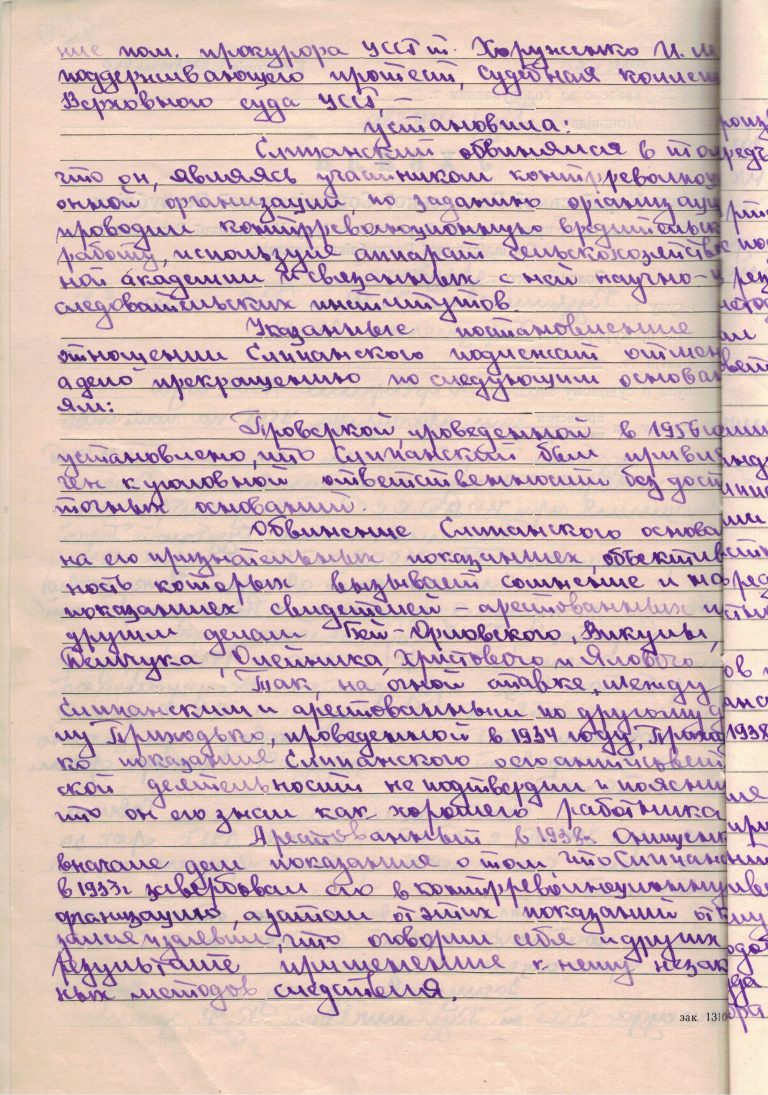 ние пом. прокурора УССР т. Хоруженко И. М
поддерживающего протест, судебная коллег
Верховного суда УССР, –
установила:
Слипанский обвинялся в том
что он, являясь участником контрреволюци
онной организации, по заданию организации
проводил контрреволюционную вредительск
работу, используя аппарат сельскохозяйствен
ной академии и связанных с ней научно-и
следовательских институтов.
Указанные постановления
отношении Слипанского подлежат отмен
а дело прекращению по следующим основан
ям:
Проверкой, проведенной в 1956
установлено, что Слипанский был привле
чен к уголовной ответственности без доста
точных оснований.
Обвинение Слипанского основа
на его признательных показаниях, объектив
ность которых вызывает сомнение и на
показаниях свидетелей – арестованных п
другим делам Бей-Орловского, Викулы,
Демчука, Олейника, Христового и Ялового
Так, на очной ставке, между
Слипанским и арестованным по другому д
лу Приходько, проведенной в 1934 году, Приход
ко показания Слипанского о его антисовет
ской деятельности не подтвердил и поясни
что он его знал как хорошего работника
Арестованный в 1938г. Онищенк
вначале дал показания о том, что Слипанск
в 1933г завербовал его в контрреволюционную
организацию, а затем от этих показаний отк
зался изъявил, что оговорил себя и других
результате применения к нему незак
ных методов следствия.
зак. 1310